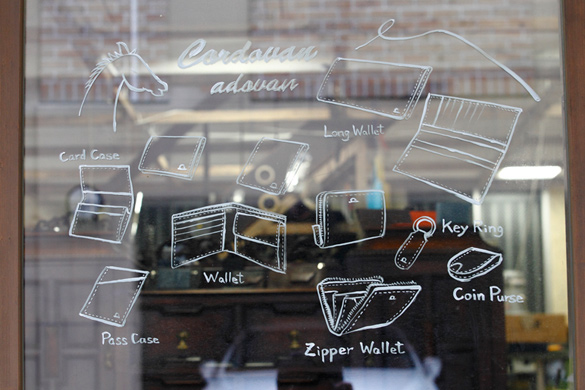 Cordovan
adovan
Long Wallet
Card Case
Key Ring
Wallet
Coin Purse
Pass Case
Zipper Wallet